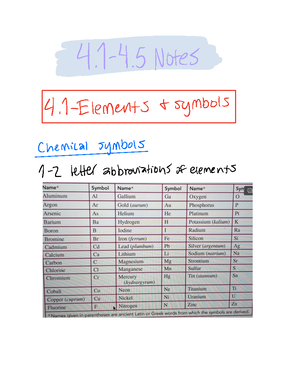 4.1-4.5 Notes
4.1-Elements & symbols
Chemical symbols
1-2 letter abbreviations of elements
Name* Symbol Name* Symbol Name* Sym
Aluminum Al Gallium Ga Oxygen O
Argon Ar Gold (aurum) Au Phosphorus P
Arsenic As Helium He Platinum Pt
Barium Ba Hydrogen H Potassium (kalium) K
Boron B Iodine I Radium Ra
Bromine Br Iron (ferrum) Fe Silicon Si
Cadmium Cd Lead (plumbum) Pb Silver (argentum) Ag
Calcium Ca Lithium Li Sodium (natrium) Na
Carbon C Magnesium Mg Strontium Sr
Chlorine Cl Manganese Mn Sulfur S
Chromium Cr Mercury Hg Tin (stannum) Sn
(hydrargyrum)
Cobalt Co Neon Ne Titanium Ti
Copper (cuprum) Cu Nickel Ni Uranium U
Fluorine F Nitrogen N Zinc Zn
*Names given in parentheses are ancient Latin or Greek words from which the symbols are derived.